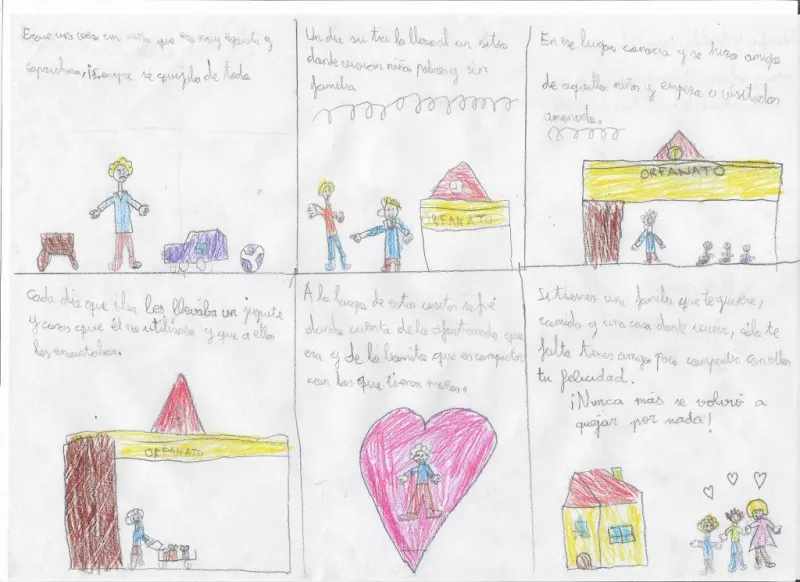 Erase una vez un niño que era muy egoista y
caprichoso, ¡Siempre se quejaba de todo
Un día su tío lo llevó a un sitio
donde vivian niños pobres y sin
familia
ORFANATO
En ese lugar conocia y se hizo amigo
de aquellos niños y empezo a visitarlos
amenudo.
ORFANATO
Cada día que iba les llevaba un juguete
y cosas que él no utilizaba y que a ellos
les encantaban.
ORFANATO
A lo largo de estas visitas se fué
dando cuenta de lo afortunado que
era y de lo bonito que es compartir
con los que tienen menos.
Si tienes una familia que te quiere,
comida y una casa donde vivir, sólo te
falta tener amigos para compartir con ellos
tu felicidad.
¡Nunca más se volvió a
quejar por nada!